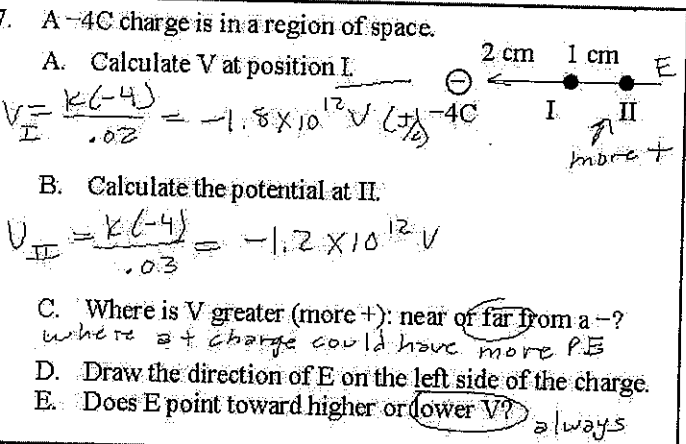 7. A -4C charge is in a region of space.
A. Calculate V at position I.
2 cm 1 cm E
V_I = K(-4)/.02 = -1.8 x 10^12 V (J/C)
-4C I II
more +
B. Calculate the potential at II.
V_II = K(-4)/.03 = -1.2 x 10^12 V
C. Where is V greater (more +): near or far from a -?
where a + charge could have more PE
D. Draw the direction of E on the left side of the charge.
E. Does E point toward higher or lower V? always